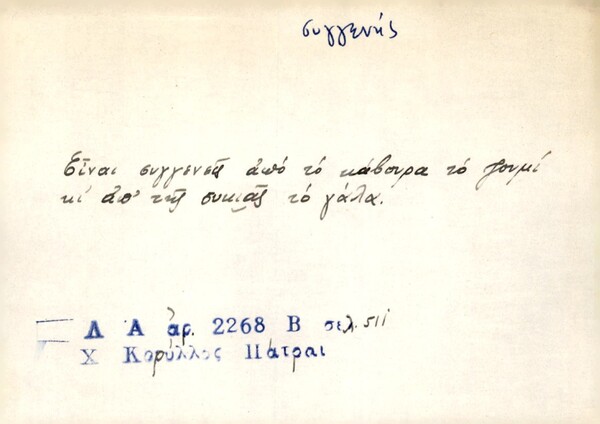 συγγενής
Εἶναι συγγενεῖς ἀπό τό κάβουρα τό ζουμί
κι ἀπ' τῆς συκιᾶς τό γάλα.
Λ Ἀ ἀρ. 2268 Β σελ. 511
Χ Κορύλλος Πάτραι